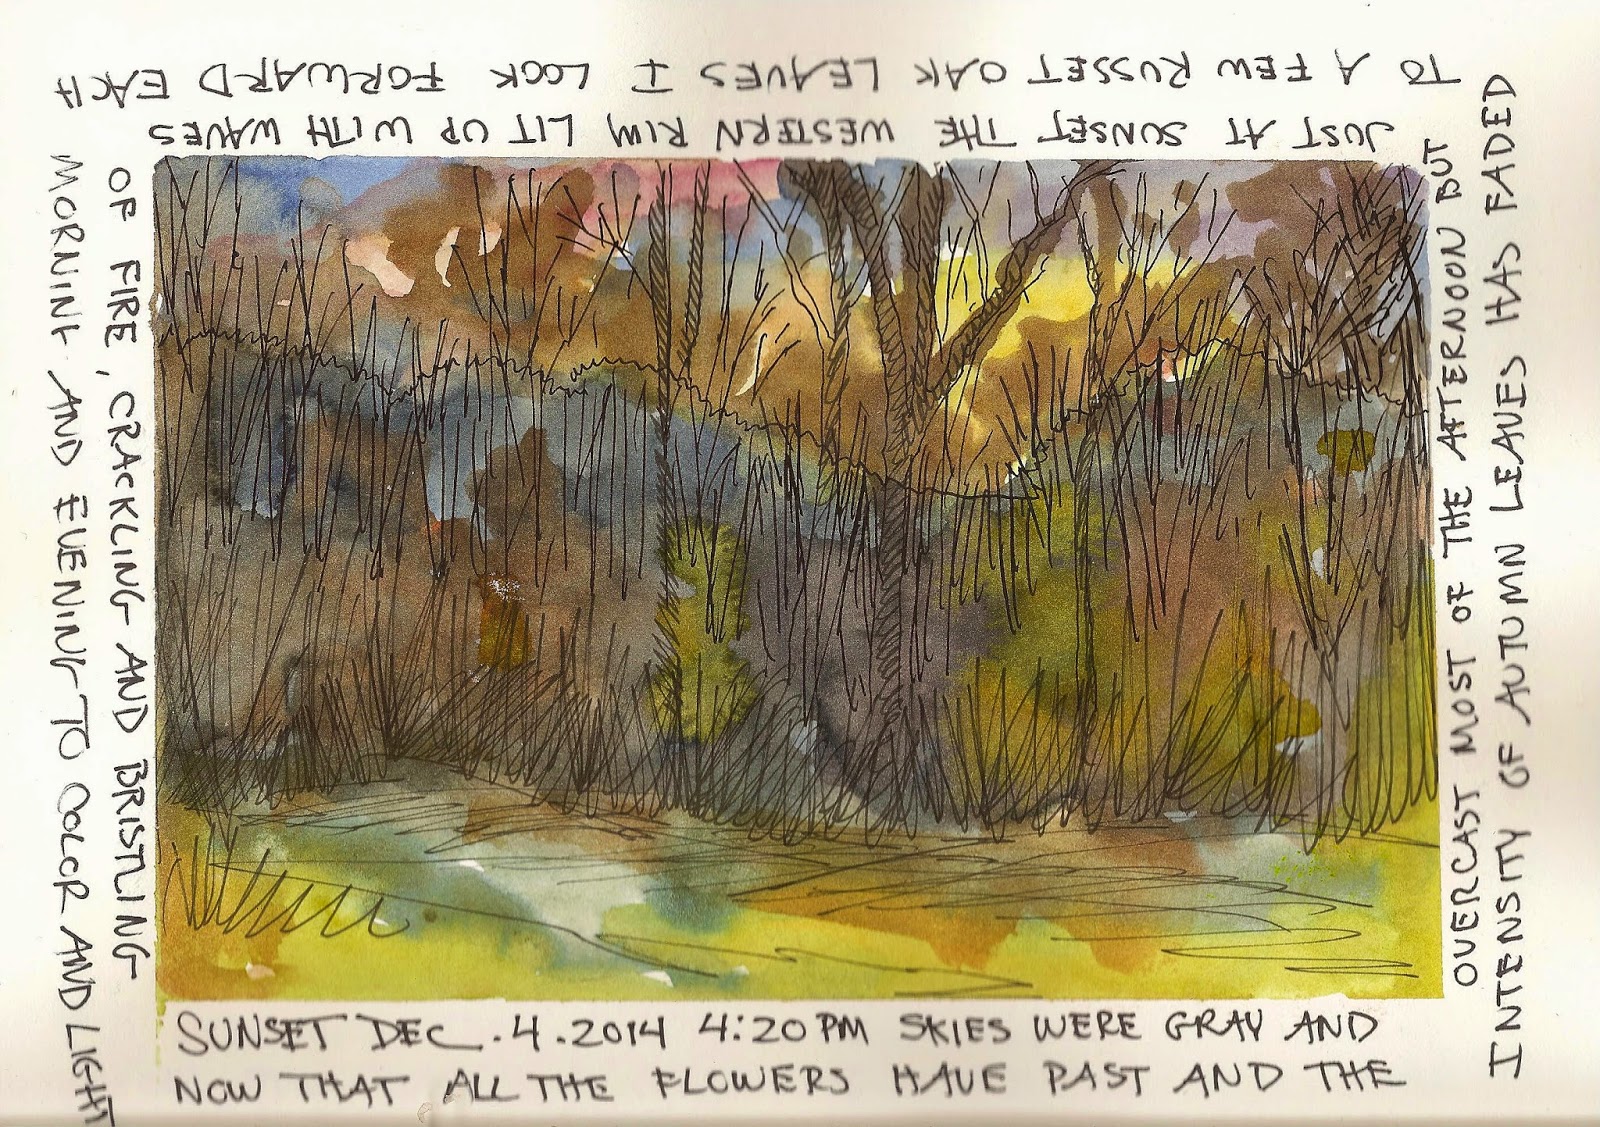 SUNSET DEC. 4. 2014 4:20 PM SKIES WERE GRAY AND
OVERCAST MOST OF THE AFTERNOON BUT
JUST AT SUNSET THE WESTERN RIM LIT UP WITH WAVES
OF FIRE, CRACKLING AND BRISTLING
NOW THAT ALL THE FLOWERS HAVE PAST AND THE
INTENSITY OF AUTUMN LEAVES HAS FADED
TO A FEW RUSSET OAK LEAVES I LOOK FORWARD EACH
MORNING AND EVENING TO COLOR AND LIGHT